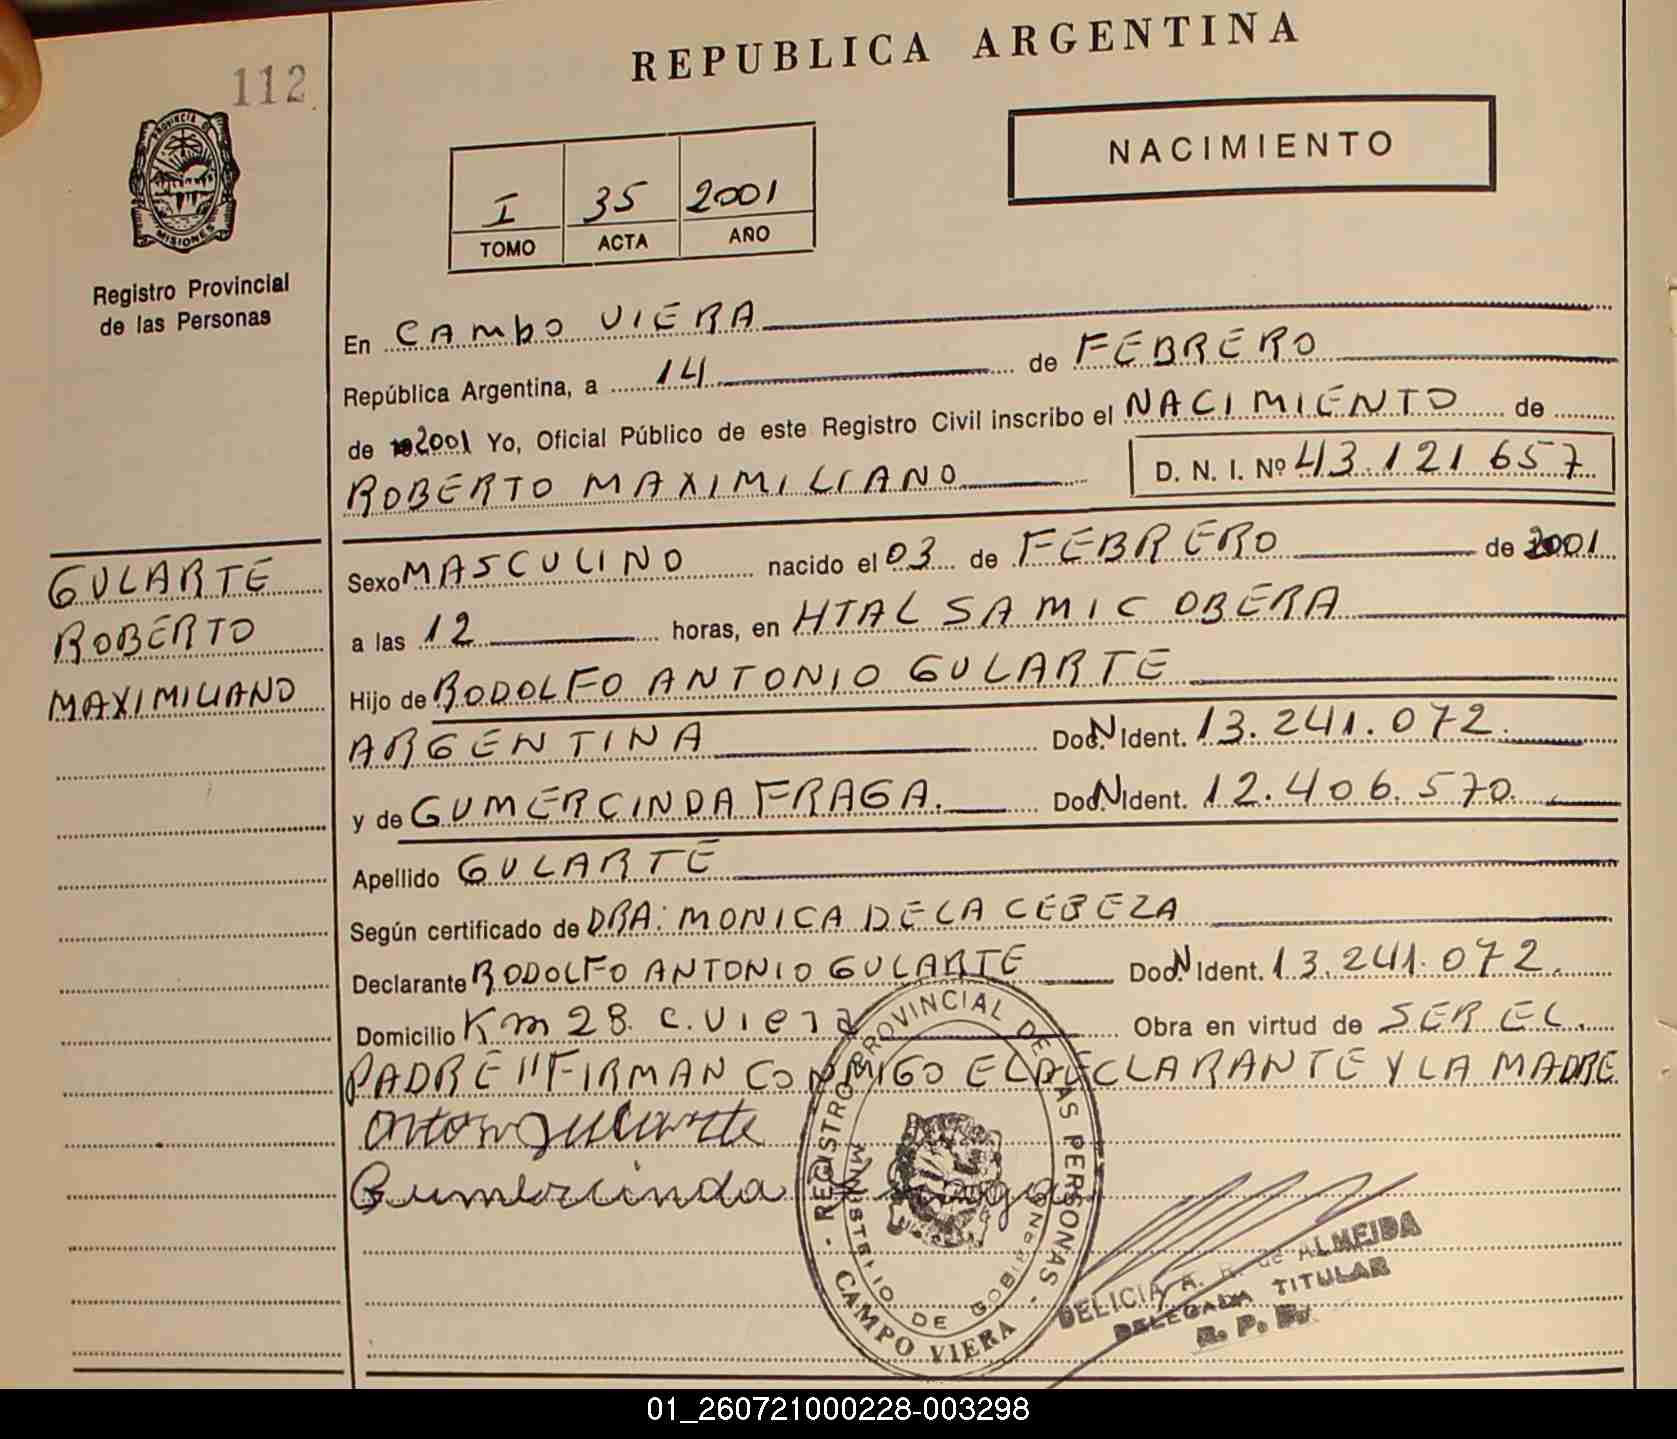 112
REPUBLICA ARGENTINA
PROVINCIA DE
MISIONES
Registro Provincial
de las Personas
I 35 2001
TOMO ACTA AÑO
NACIMIENTO
En CAMPO VIERA
República Argentina, a 14 de FEBRERO
de 2001 Yo, Oficial Público de este Registro Civil inscribo el NACIMIENTO de
ROBERTO MAXIMILIANO D. N. I. Nº 43.121657
GULARTE
ROBERTO
MAXIMILIANO
Sexo MASCULINO nacido el 03 de FEBRERO de 2001
a las 12 horas, en HTAL SAMIC OBERA
Hijo de RODOLFO ANTONIO GULARTE
ARGENTINA Doc. N Ident. 13.241.072.
y de GUMERCINDA FRAGA. Doc. N Ident. 12.406.570.
Apellido GULARTE
Según certificado de DRA: MONICA DE LA CEBEZA
Declarante RODOLFO ANTONIO GULARTE Doc. N Ident. 13.241.072.
Domicilio Km 28. C. Viera Obra en virtud de SER EL.
PADRE "FIRMAN CONMIGO EL DECLARANTE Y LA MADRE
Gumercinda
REGISTRO PROVINCIAL DE LAS PERSONAS
MINISTERIO DE GOBIERNO
CAMPO VIERA
DELICIA A. de ALMEIDA
DELEGADA TITULAR
R. P. P.
01_260721000228-003298